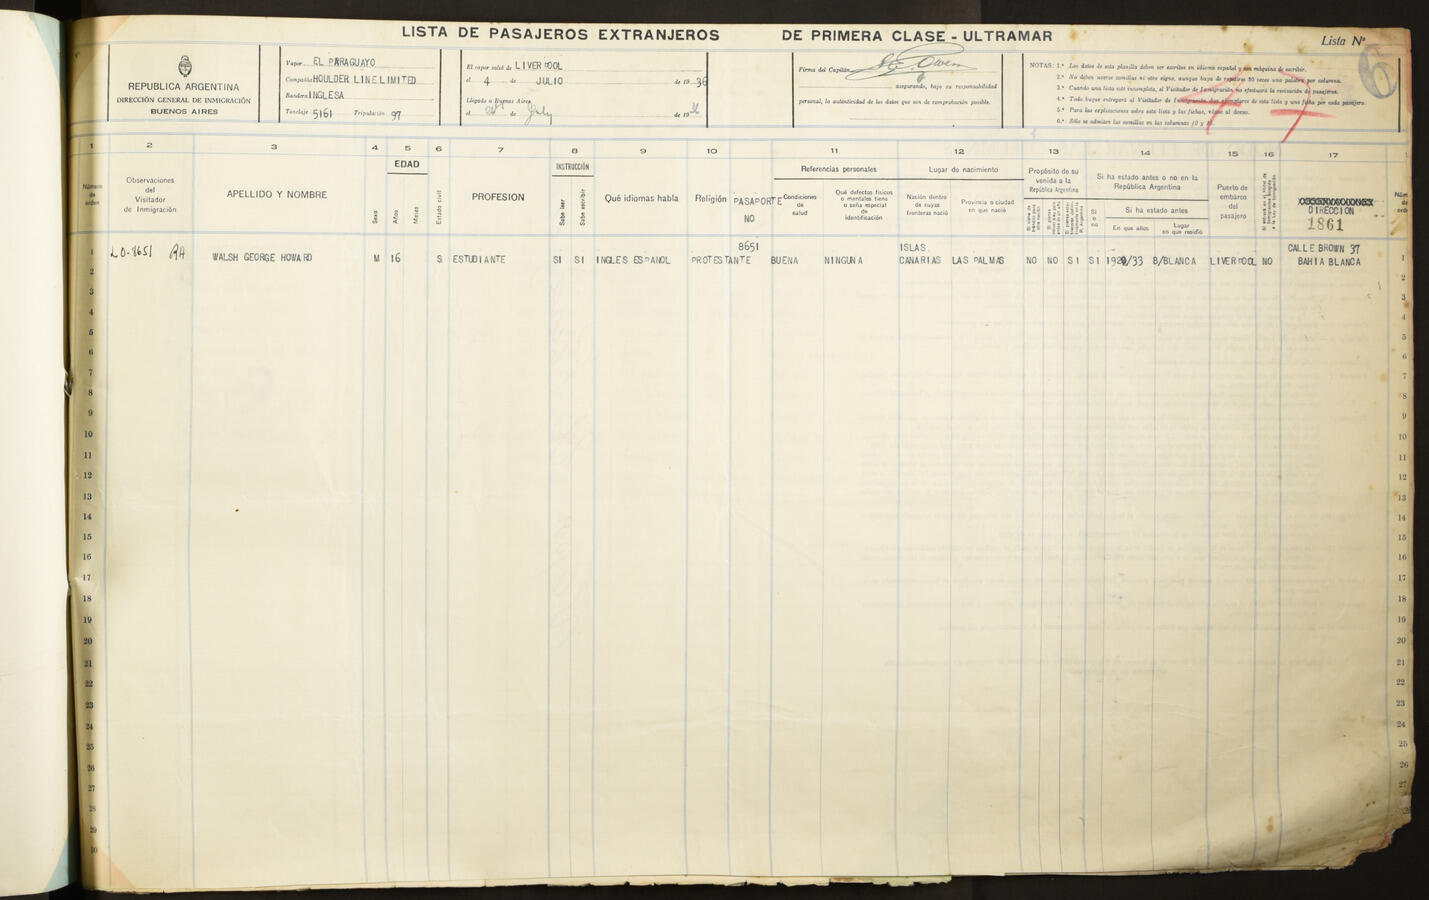 LISTA DE PASAJEROS EXTRANJEROS DE PRIMERA CLASE - ULTRAMAR
Lista Nº
6
REPUBLICA ARGENTINA
DIRECCIÓN GENERAL DE INMIGRACIÓN
BUENOS AIRES
Vapor EL PARAGUAYO
Compañía HOULDER LINE LIMITED
Bandera INGLESA
Tonelaje 5161 Tripulación 97
El vapor salió de LIVERPOOL
el 4 de JULIO de 1936
Llegado a Buenos Aires
el de July de 19
Firma del Capitán
asegurando, bajo su responsabilidad
personal, la autenticidad de los datos que son de comprobación posible.
NOTAS: 1.ª Los datos de esta planilla deben ser escritos en idioma español y con máquina de escribir.
2.ª No deben usarse comillas ni otro signo, aunque haya de repetirse 30 veces una palabra por columna.
3.ª Cuando una lista esté incompleta, el Visitador de Inmigración no efectuará la revisación de pasajeros.
4.ª Todo buque entregará al Visitador de Inmigración dos ejemplares de esta lista y una ficha por cada pasajero.
5.ª Para las explicaciones sobre esta lista y las fichas, véase al dorso.
6.ª Sólo se admiten las comillas en las columnas 12 y
1 2 3 4 5 6 7 8 9 10 11 12 13 14 15 16 17
Número de orden
Observaciones del Visitador de Inmigración
APELLIDO Y NOMBRE
Sexo
EDAD
Años
Meses
Estado civil
PROFESION
INSTRUCCIÓN
Sabe leer
Sabe escribir
Qué idiomas habla
Religión
PASAPORTE NO
Referencias personales
Condiciones de salud
Qué defectos físicos o mentales tiene o seña especial de identificación
Lugar de nacimiento
Nación dentro de cuyas fronteras nació
Provincia o ciudad en que nació
Propósito de su venida a la República Argentina
Si ha estado antes o no en la República Argentina
Si o no
Si ha estado antes
En que años
Lugar en que residió
Puerto de embarco del pasajero
DIRECCION
1861
1 LO-8651 WALSH GEORGE HOWARD M 16 S ESTUDIANTE SI SI INGLES ESPANOL PROTESTANTE 8651 BUENA NINGUNA ISLAS CANARIAS LAS PALMAS NO NO SI SI /33 B/BLANCA LIVERPOOL NO CALLE BROWN 37 BAHIA BLANCA 1
2 2
3 3
4 4
5 5
6 6
7 7
8 8
9 9
10 10
11 11
12 12
13 13
14 14
15 15
16 16
17 17
18 18
19 19
20 20
21 21
22 22
23 23
24 24
25 25
26 26
27 27
28 28
29 29
30